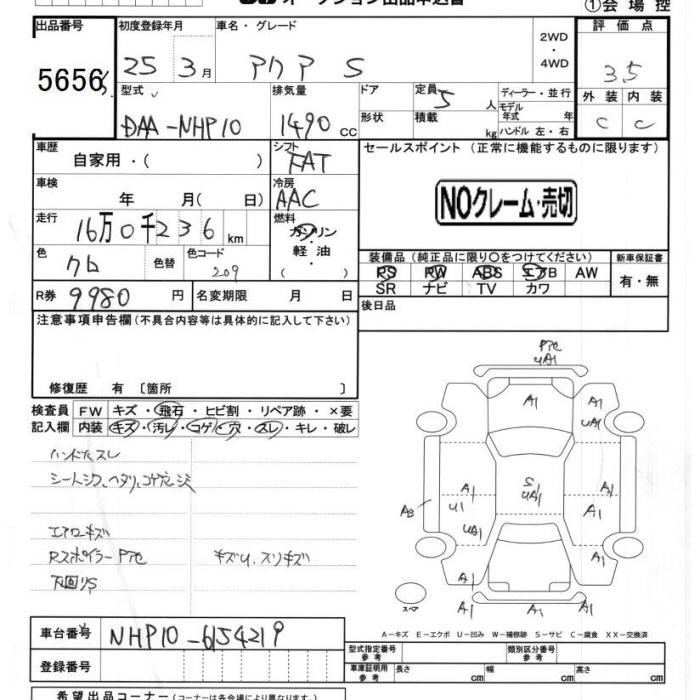 オークション出品申込書
①会場控
出品番号
初度登録年月
車名・グレード
2WD
・
4WD
評価点
5656
25 3月
アクア S
3.5
型式
排気量
ドア
定員
ディーラー・並行
外装 内装
DAA-NHP10
1490 CC
5人
モデル年式 年
C C
形状
積載
kg
ハンドル 左・右
車歴
自家用・(
)
シフト
FAT
セールスポイント (正常に機能するものに限ります)
車検
年 月(日)
冷房
AAC
NOクレーム・売切
走行
16万0千236km
燃料
ガソリン
・
軽油
( )
色
クロ
色替
色コード
209
装備品 (純正品に限り○をつけてください)
新車保証書
PS PW ABS エアB AW
有・無
SR ナビ TV カワ
R券
9980円
名変期限 月 日
後日品
注意事項申告欄 (不具合内容等は具体的に記入して下さい)
修復歴 有 〔箇所 〕
検査員
記入欄
FW キズ・飛石・ヒビ割・リペア跡・×要
内装 キズ・汚レ・コゲ・穴・スレ・キレ・破レ
ハンドルスレ
エアロキズ
Rスポイラー
キズU、スリキズ
下回りS
P他
UA1
A1
A1
UA1
A1
U1
UA1
S
UA1
A1
A1
A1
A1
A1
スペア
A-キズ E-エクボ U-凹み W-補修跡 S-サビ C-腐食 XX-交換済
車台番号
NHP10-6154219
型式指定番号
参考
類別区分番号
参考
登録番号
車庫証明用
参考
長さ cm
幅 cm
高さ cm
希望出品コーナー (コーナーは各会場により異なります)